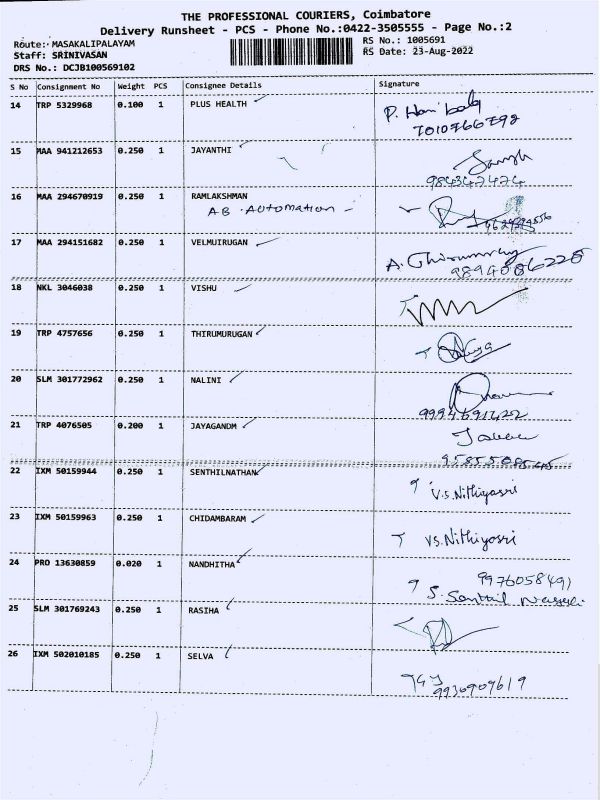 THE PROFESSIONAL COURIERS, Coimbatore
Delivery Runsheet - PCS - Phone No.:0422-3505555 - Page No.:2
Route: MASAKALIPALAYAM RS No.: 1005691
Staff: SRINIVASAN RS Date: 23-Aug-2022
DRS No.: DCJB100569102
S No Consignment No Weight PCS Consignee Details Signature
14 TRP 5329968 0.100 1 PLUS HEALTH P. Hari
7010766792
15 MAA 941212653 0.250 1 JAYANTHI
9843427474
16 MAA 294670919 0.250 1 RAMLAKSHMAN
AB AUTOMATION -
17 MAA 294151682 0.250 1 VELMUIRUGAN A.
9894086228
18 NKL 3046038 0.250 1 VISHU
19 TRP 4757656 0.250 1 THIRUMURUGAN
20 SLM 301772962 0.250 1 NALINI
21 TRP 4076505 0.200 1 JAYAGANDM
22 IXM 50159944 0.250 1 SENTHILNATHAN
V.S.Nithiyasri
23 IXM 50159963 0.250 1 CHIDAMBARAM
VS.Nithiyosri
24 PRO 13630859 0.020 1 NANDHITHA
9976058491
S.
25 SLM 301769243 0.250 1 RASIHA
26 IXM 502010185 0.250 1 SELVA
9930909619